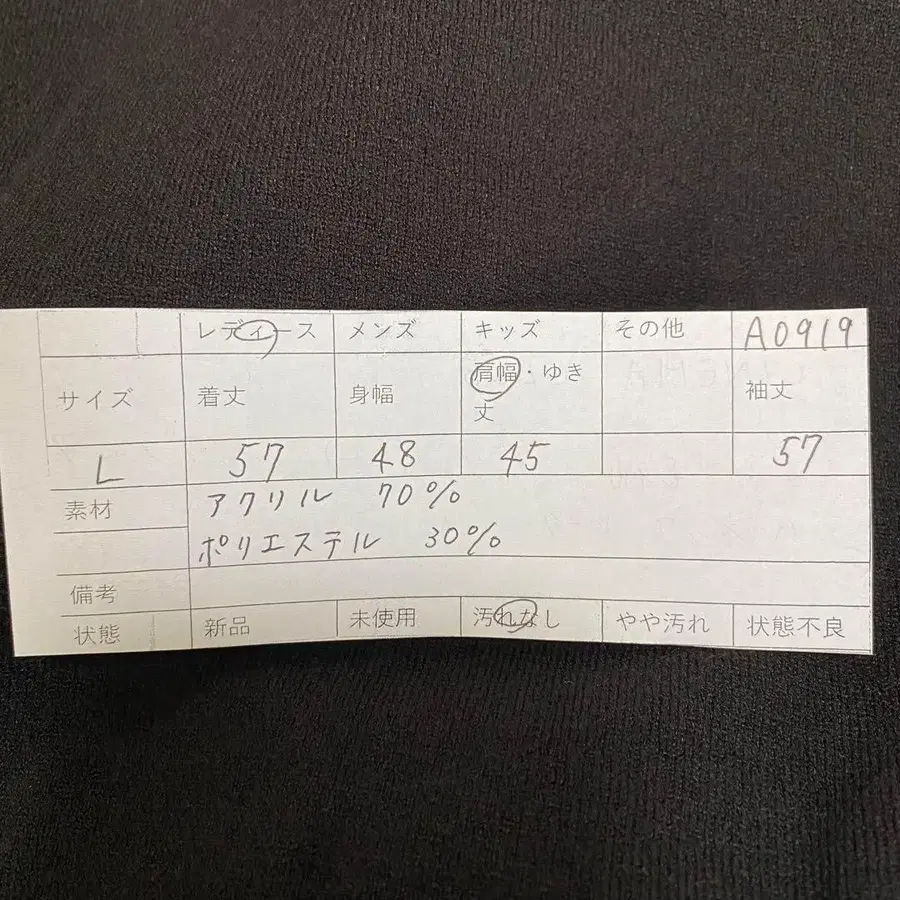 レディース メンズ キッズ その他 A0919
サイズ 着丈 身幅 肩幅・ゆき丈 袖丈
L 57 48 45 57
素材 アクリル 70%
ポリエステル 30%
備考
状態 新品 未使用 汚れなし やや汚れ 状態不良